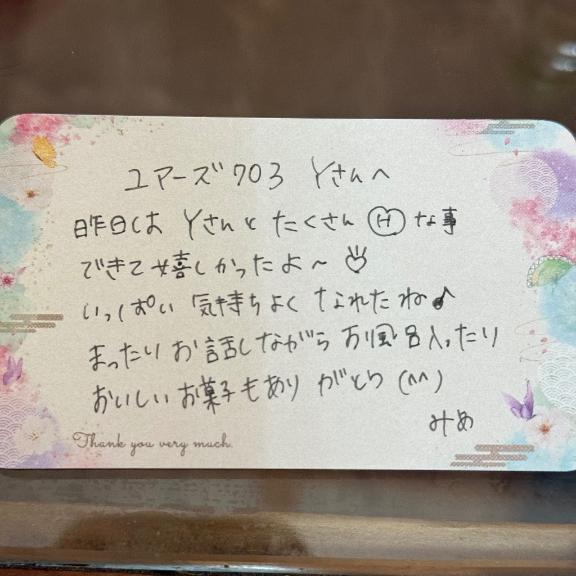 ユアーズ703 Yさんへ
昨日は Yさんと たくさん Hな事
できて 嬉しかったよ〜♡
いっぱい 気持ちよく なれたね♪
まったり お話しながら お風呂入ったり
おいしい お菓子も ありがとう (^^)
みめ
Thank you very much.